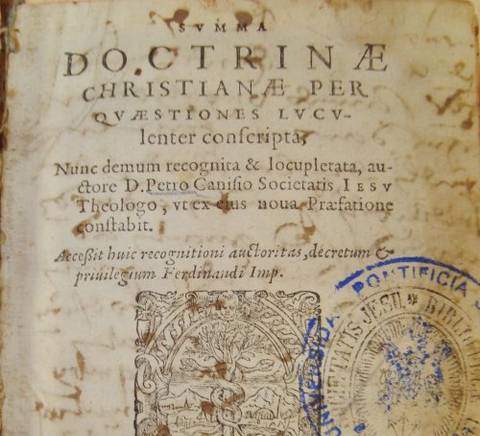 SVMMA
DOCTRINÆ
CHRISTIANÆ PER
QVÆSTIONES LVCV-
lenter conſcripta,
Nunc demum recognita & locupletata, au-
ctore D. Petro Caniſio Societatis IESV
Theologo, vt ex eius noua Præfatione
conſtabit.
Acceßit huic recognitioni auctoritas, decretum &
priuilegium Ferdinandi Imp.
PONTIFICIA